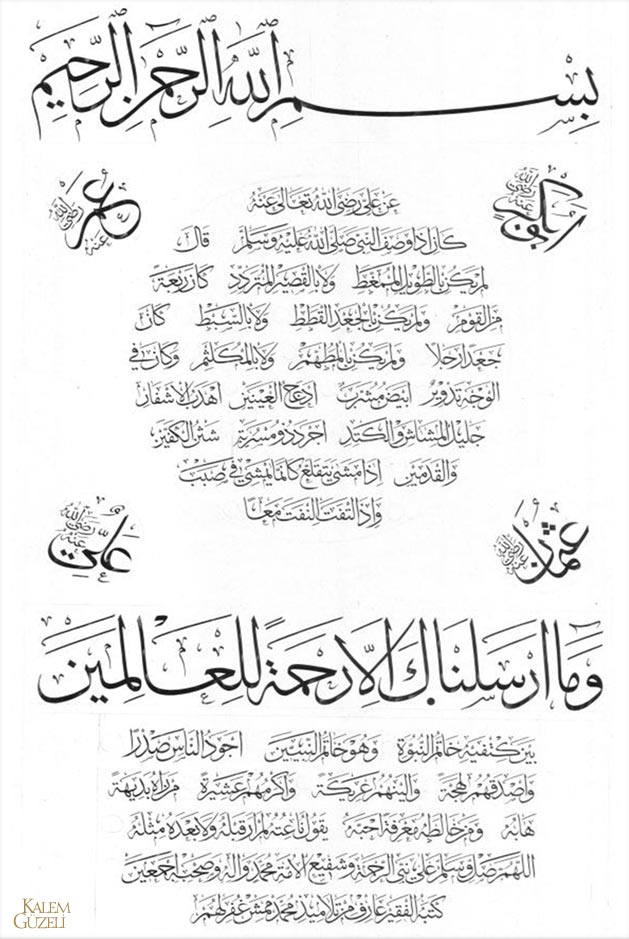 بِسْمِ اللّٰهِ الرَّحْمٰنِ الرَّحِيمِ
ابوبكر رضي الله عنه
عمر رضي الله عنه
عن علي رضي الله تعالى عنه
كان اذا وصف النبي صلى الله عليه وسلم قال
لم يكن بالطويل الممغط ولا بالقصير المتردد كان ربعة
من القوم ولم يكن بالجعد القطط ولا بالسبط كان
جعدا رجلا ولم يكن بالمطهم ولا بالمكلثم وكان في
الوجه تدوير ابيض مشرب ادعج العينين اهدب الاشفار
جليل المشاش والكتد اجرد ذو مسربة شثن الكفين
والقدمين اذا مشى يتقلع كانما يمشي في صبب
واذا التفت التفت معا
عثمان رضي الله عنه
علي رضي الله عنه
وَمَا اَرْسَلْنَاكَ اِلَّا رَحْمَةً لِلْعَالَمِينَ
بين كتفيه خاتم النبوة وهو خاتم النبيين اجود الناس صدرا
واصدقهم لهجة والينهم عريكة واكرمهم عشيرة من رآه بديهة
هابه ومن خالطه معرفة احبه يقول ناعته لم ار قبله ولا بعده مثله
اللهم صل وسلم على نبي الرحمة وشفيع الامة محمد وآله وصحبه اجمعين
كتبه الفقير عارف من تلاميذ محمد ممش غفر لهم
KALEM
GÜZELİ